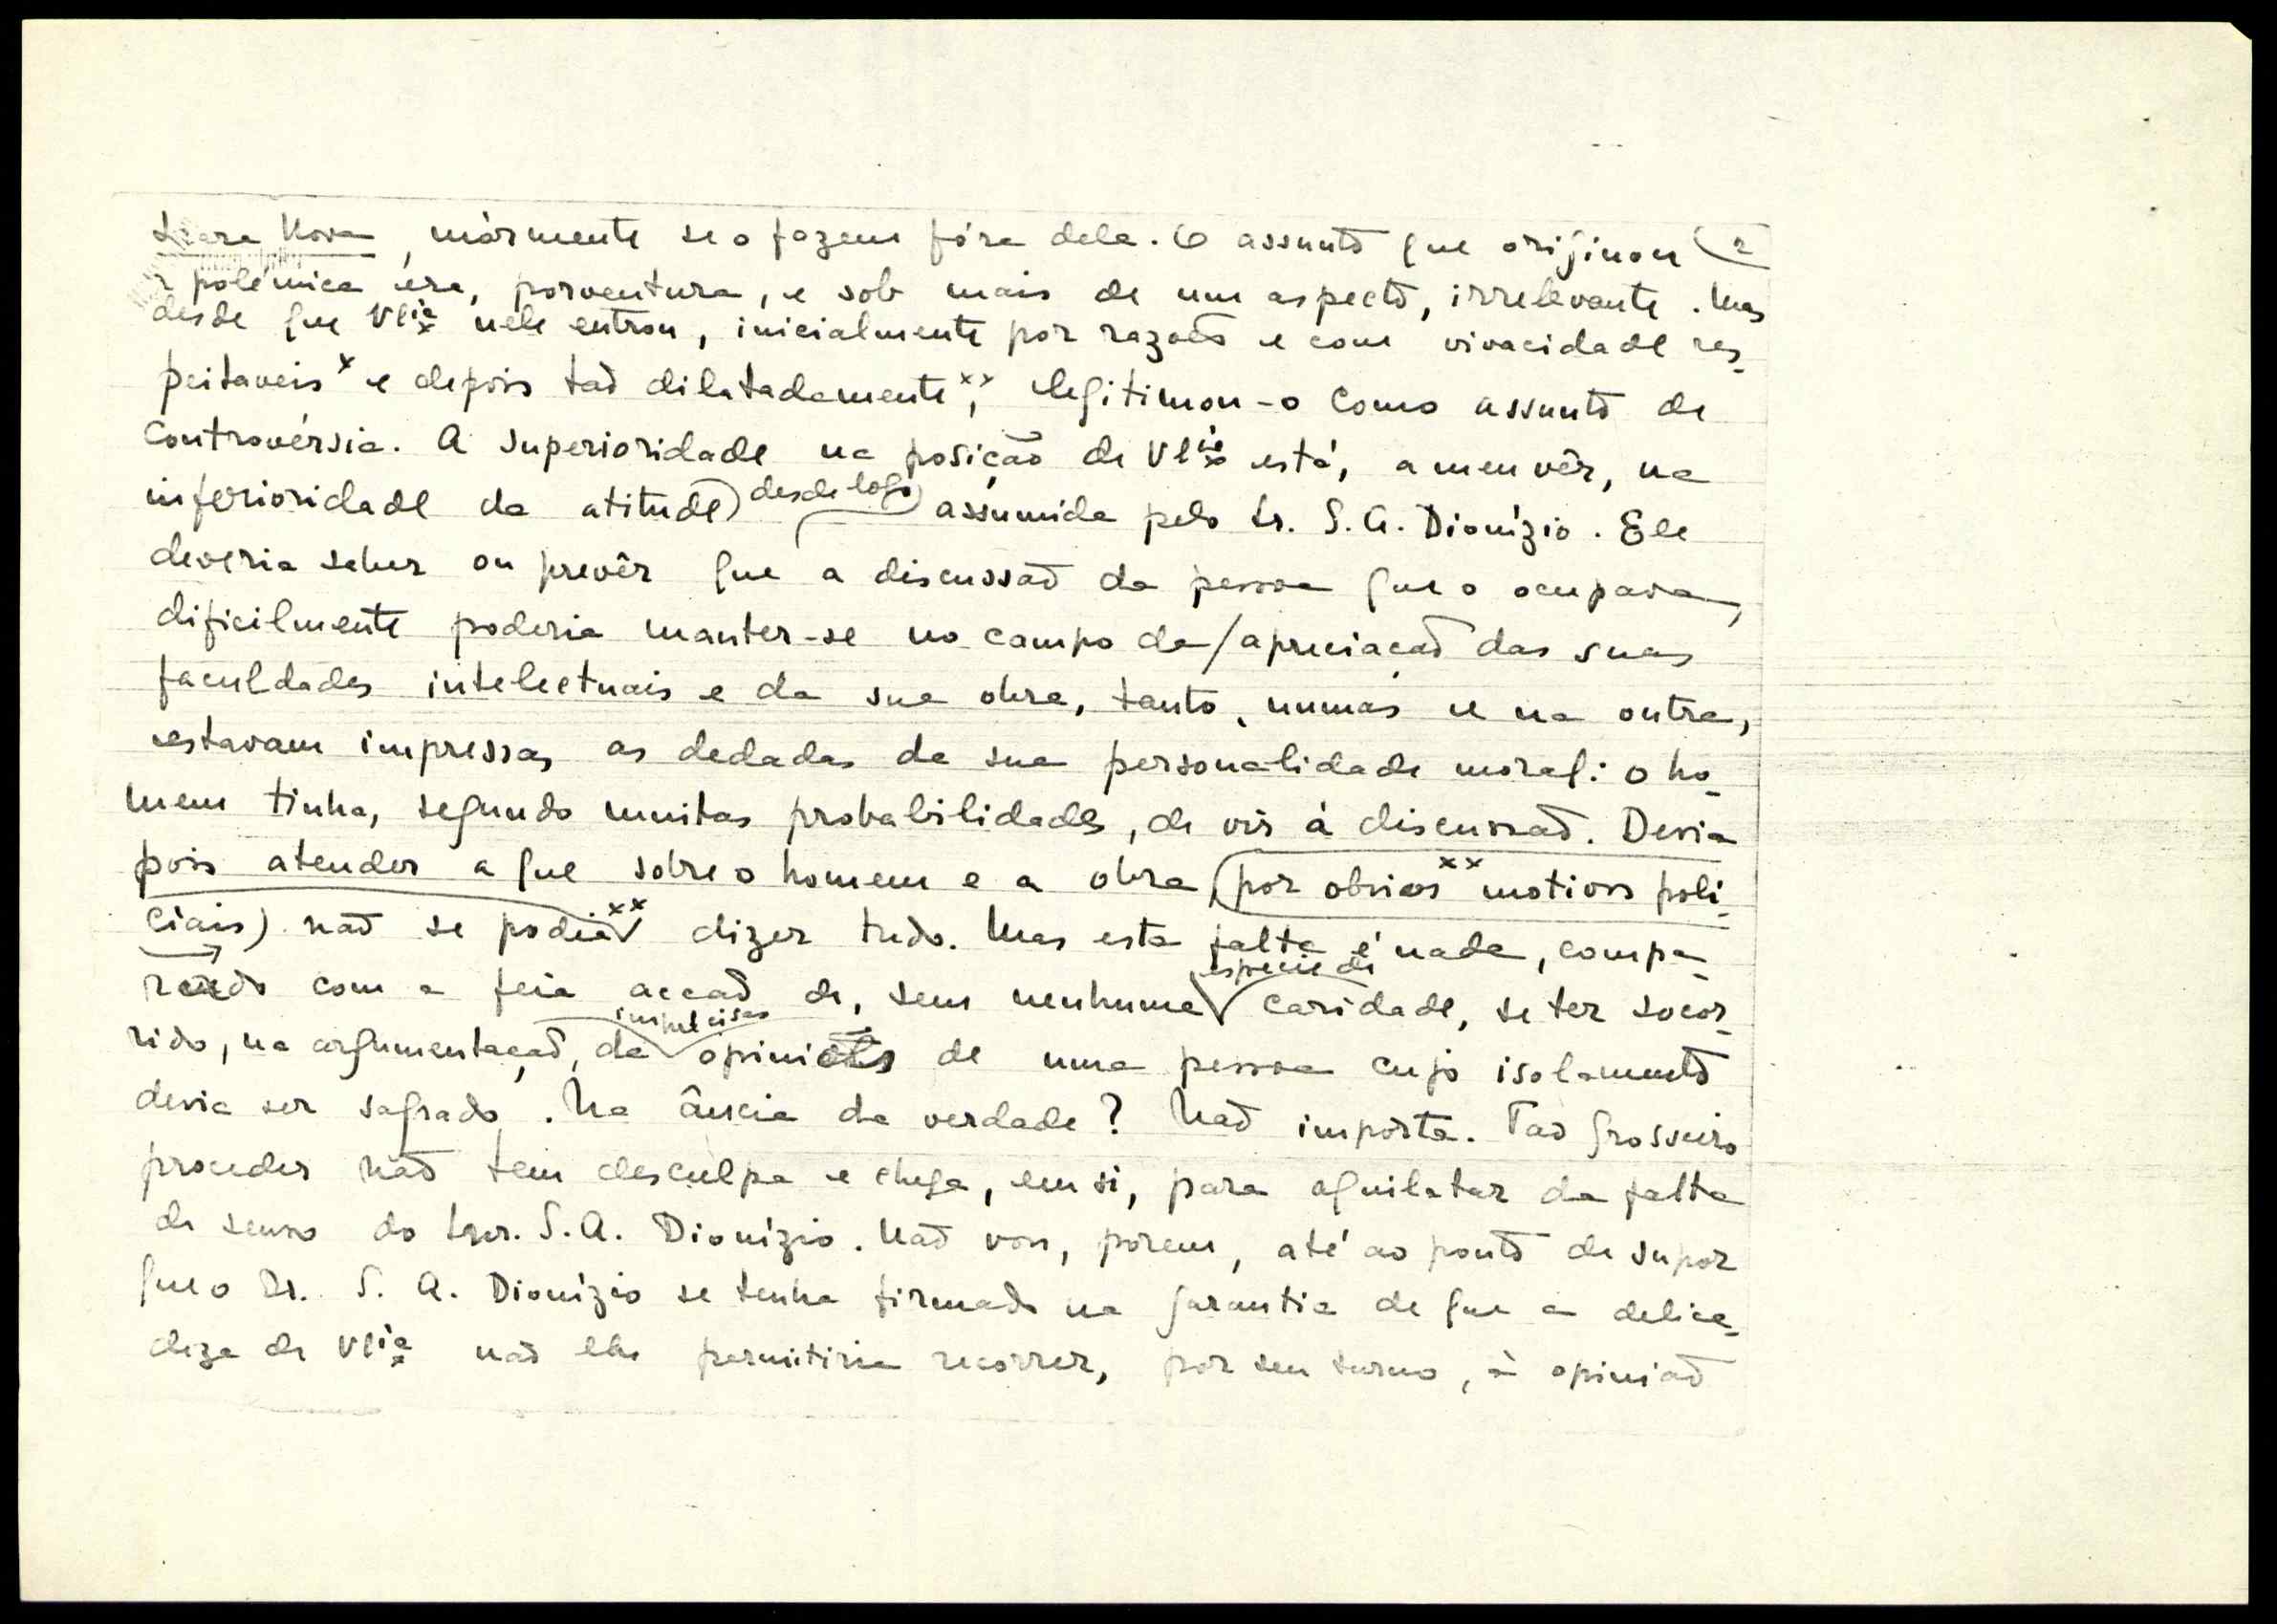 Seara Nova, mòrmente se o fazem fóra dela. O assunto que originou 2
a polémica éra, porventura, e sob mais de um aspecto, irrelevante. Mas
desde que Vl.ia nele entrou, inicialmente por razões e com vivacidade res-
peitaveis x e depois tão dilatadamente xx, legitimou-o como assunto de
controvérsia. A superioridade na posição de Vl.ia está, a meu vêr, na
inferioridade da atitude) desde logo (assumida pelo Sr. S. A. Dionízio. Ele
deveria saber ou prevêr que a discussão da pessoa que o ocupava,
dificilmente poderia manter-se no campo da/apreciação das suas
faculdades intelectuais e da sua obra, tanto, numas e na outra,
estavam impressas as dedadas da sua personalidade moral: o ho-
mem tinha, segundo muitas probabilidades, de vir à discussão. Devia
pois atender a que sobre o homem e a obra (por obvios xx motivos poli-
ciais) não se podia xx dizer tudo. Mas esta falta é nada, compa-
rado com a feia acção de, sem nenhuma espécie de caridade, se ter socor-
rido, na argumentação, da imprecisas opiniões de uma pessoa cujo isolamento
devia ser sagrado. Na ância da verdade? Não importa. Tão grosseiro
proceder não tem desculpa e chega, em si, para aquilatar da falta
de senso do Snr. S. A. Dionízio. Não vou, porem, até ao ponto de supor
que o Dr. S. A. Dionízio se tenha firmado na garantia de que a delica-
deza de Vl.ia não lhe permitiria recorrer, por seu turno, à opinião